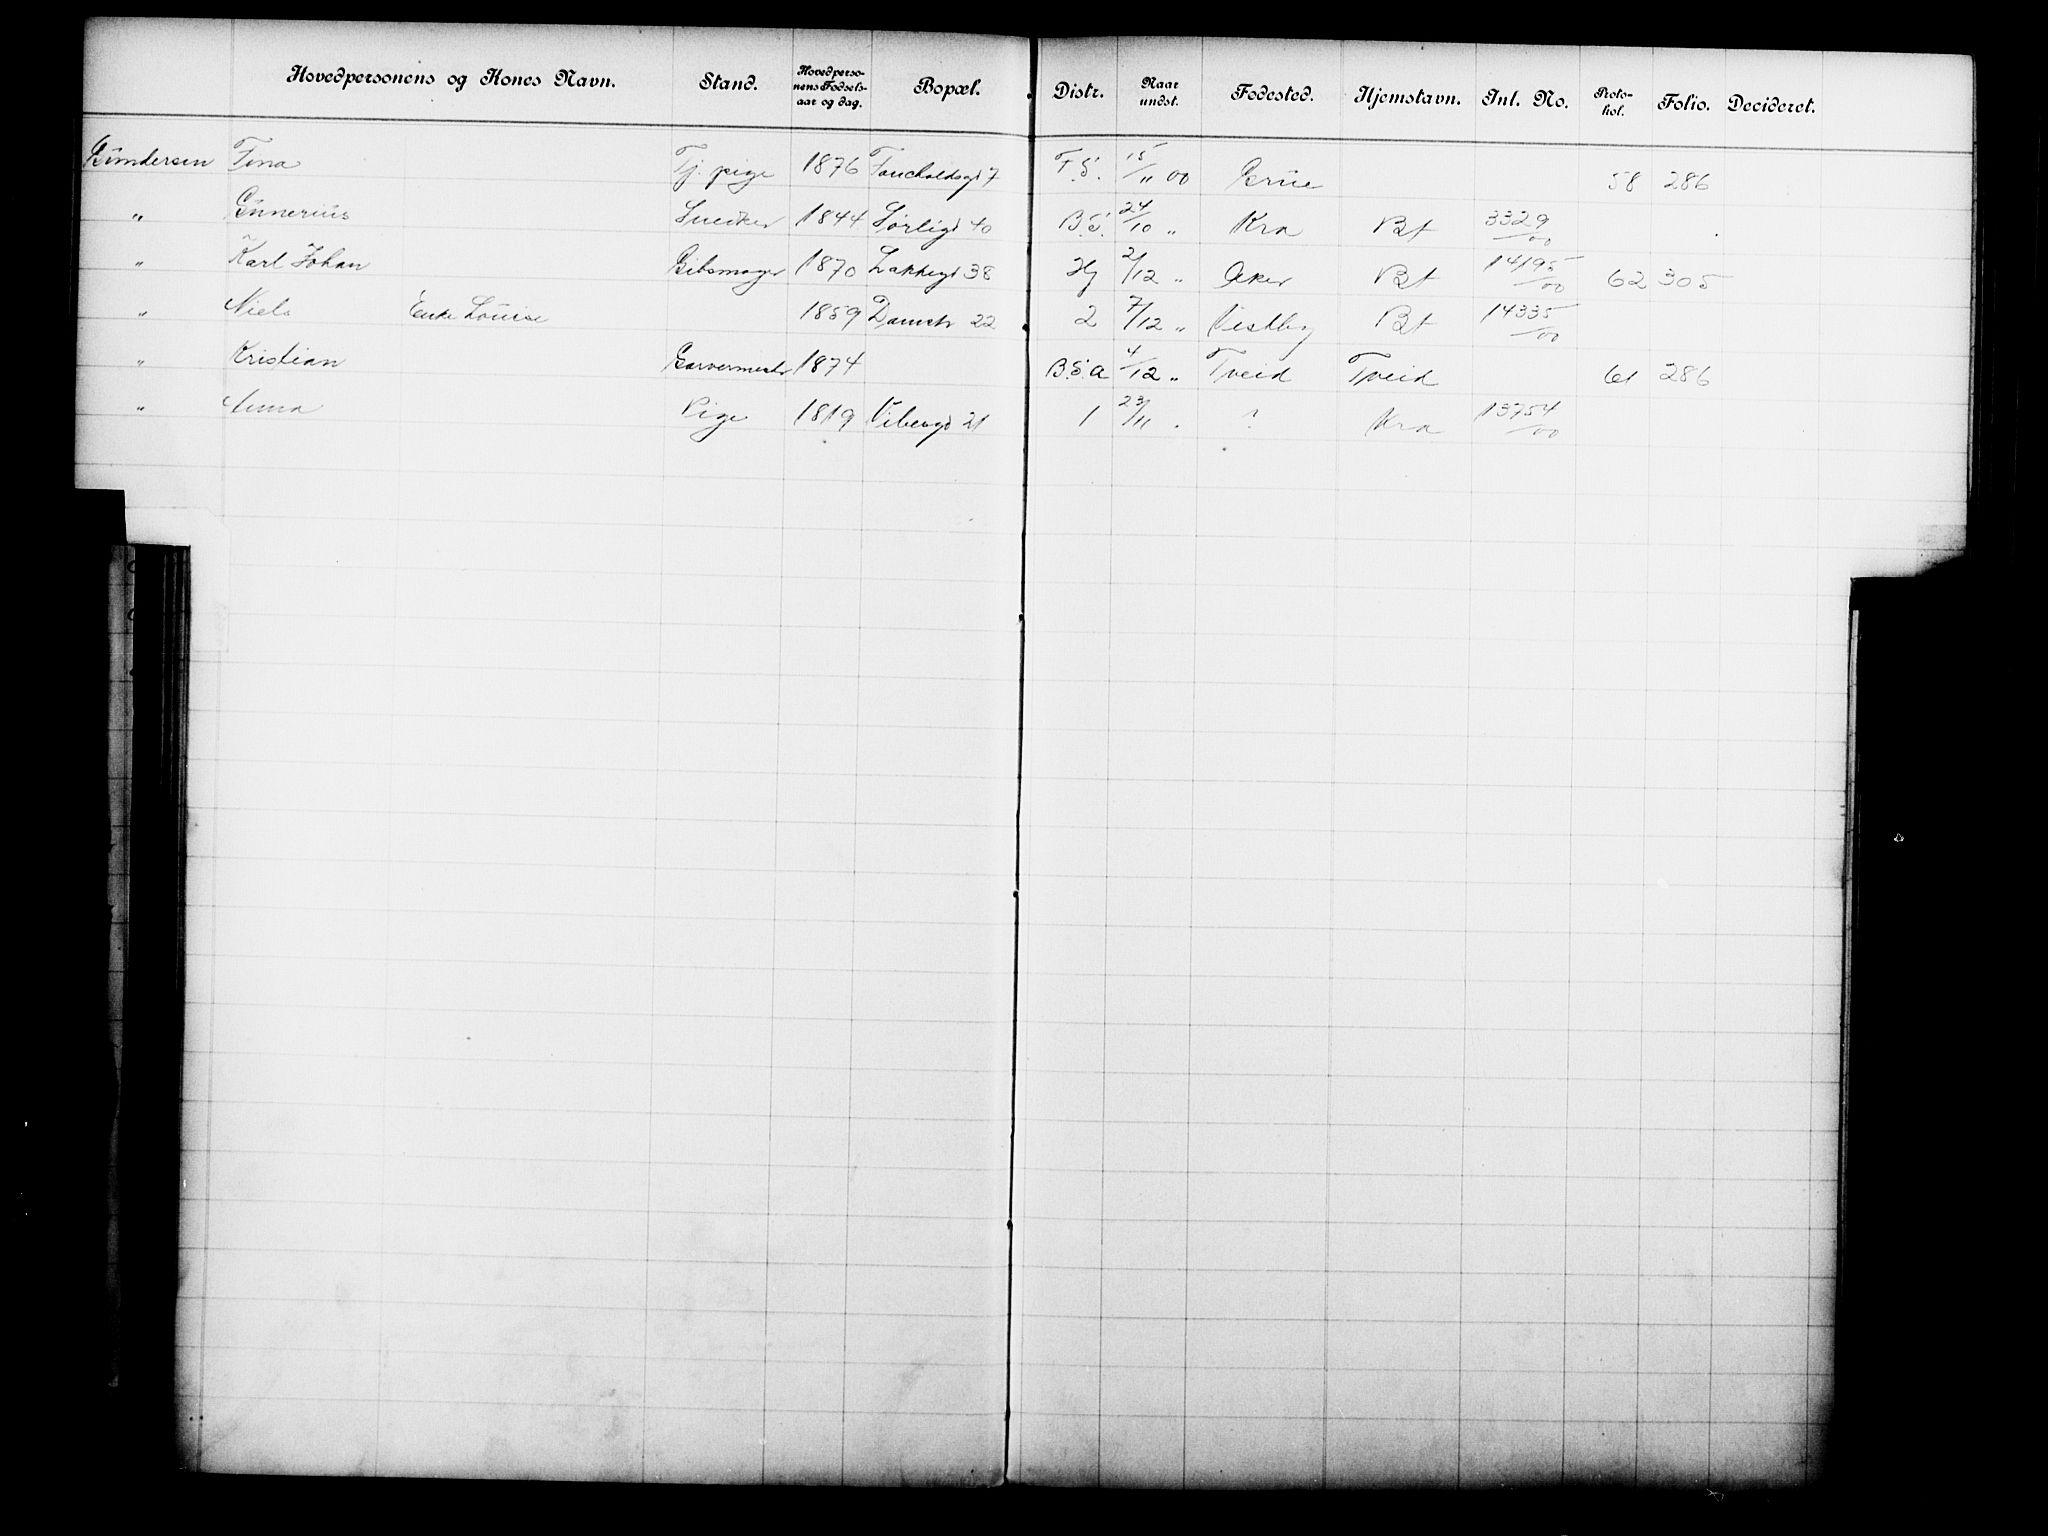 Hovedpersonens og Kones Navn. Stand. Hovedperso-nens Fødsels-aar og dag. Bopæl. Distr. Naar undst. Fødested. Hjemstavn. Inl. No. Proto-kol. Folio. Decideret.
Gundersen Tina Tj. pige 1876 7 F.S. 15/11 00 Grue 58 286
" Gunerius Snedker 1844 Sørligd 40 B.S. 24/10 " Kra Bt 3329/00
" Karl Johan Gibsmager 1870 Lakkegd 38 Hj 2/12 " Aker Bt 14195/00 62 305
" Niels Enke Louise 1859 Damstr 22 2 7/12 " Vestby Bt 14335/00
" Kristian Garvermester 1874 B.S.A 4/12 " Tveid Tveid 61 286
" Anna Pige 1819 Vibesgd 21 1 23/11 " ? Kra 13754/00